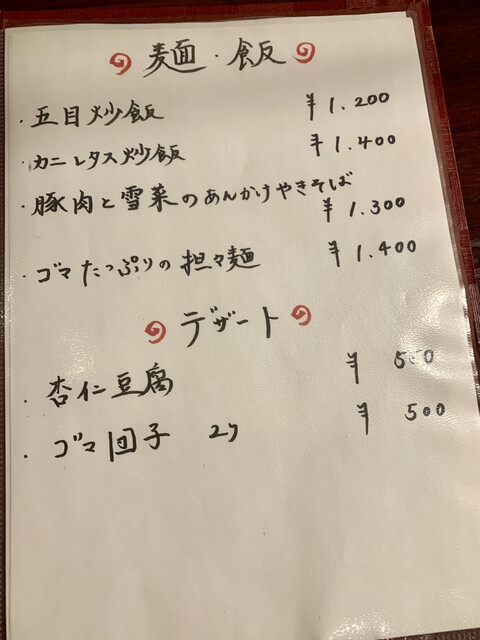 麺・飯
・五目炒飯 ¥1.200
・カニレタス炒飯 ¥1.400
・豚肉と雪菜のあんかけやきそば
¥1.300
・ゴマたっぷりの担々麺 ¥1.400
デザート
・杏仁豆腐 ¥500
・ゴマ団子 2ヶ ¥500